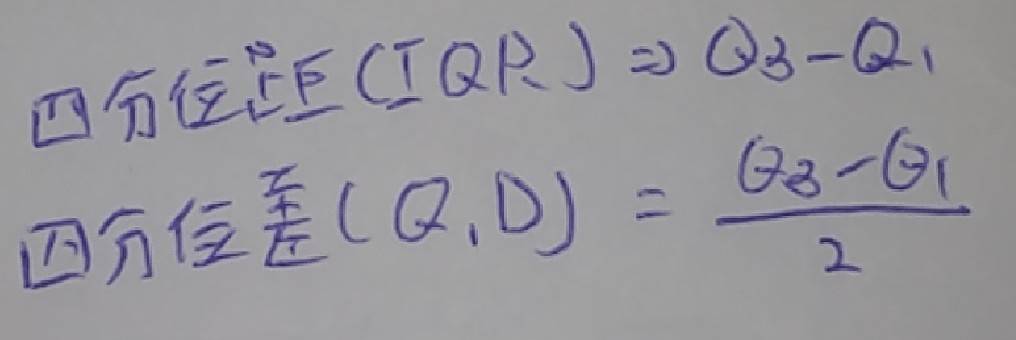 四分位距(IQR) ⇒ Q3-Q1
四分位差(Q.D) = Q3-Q1
2